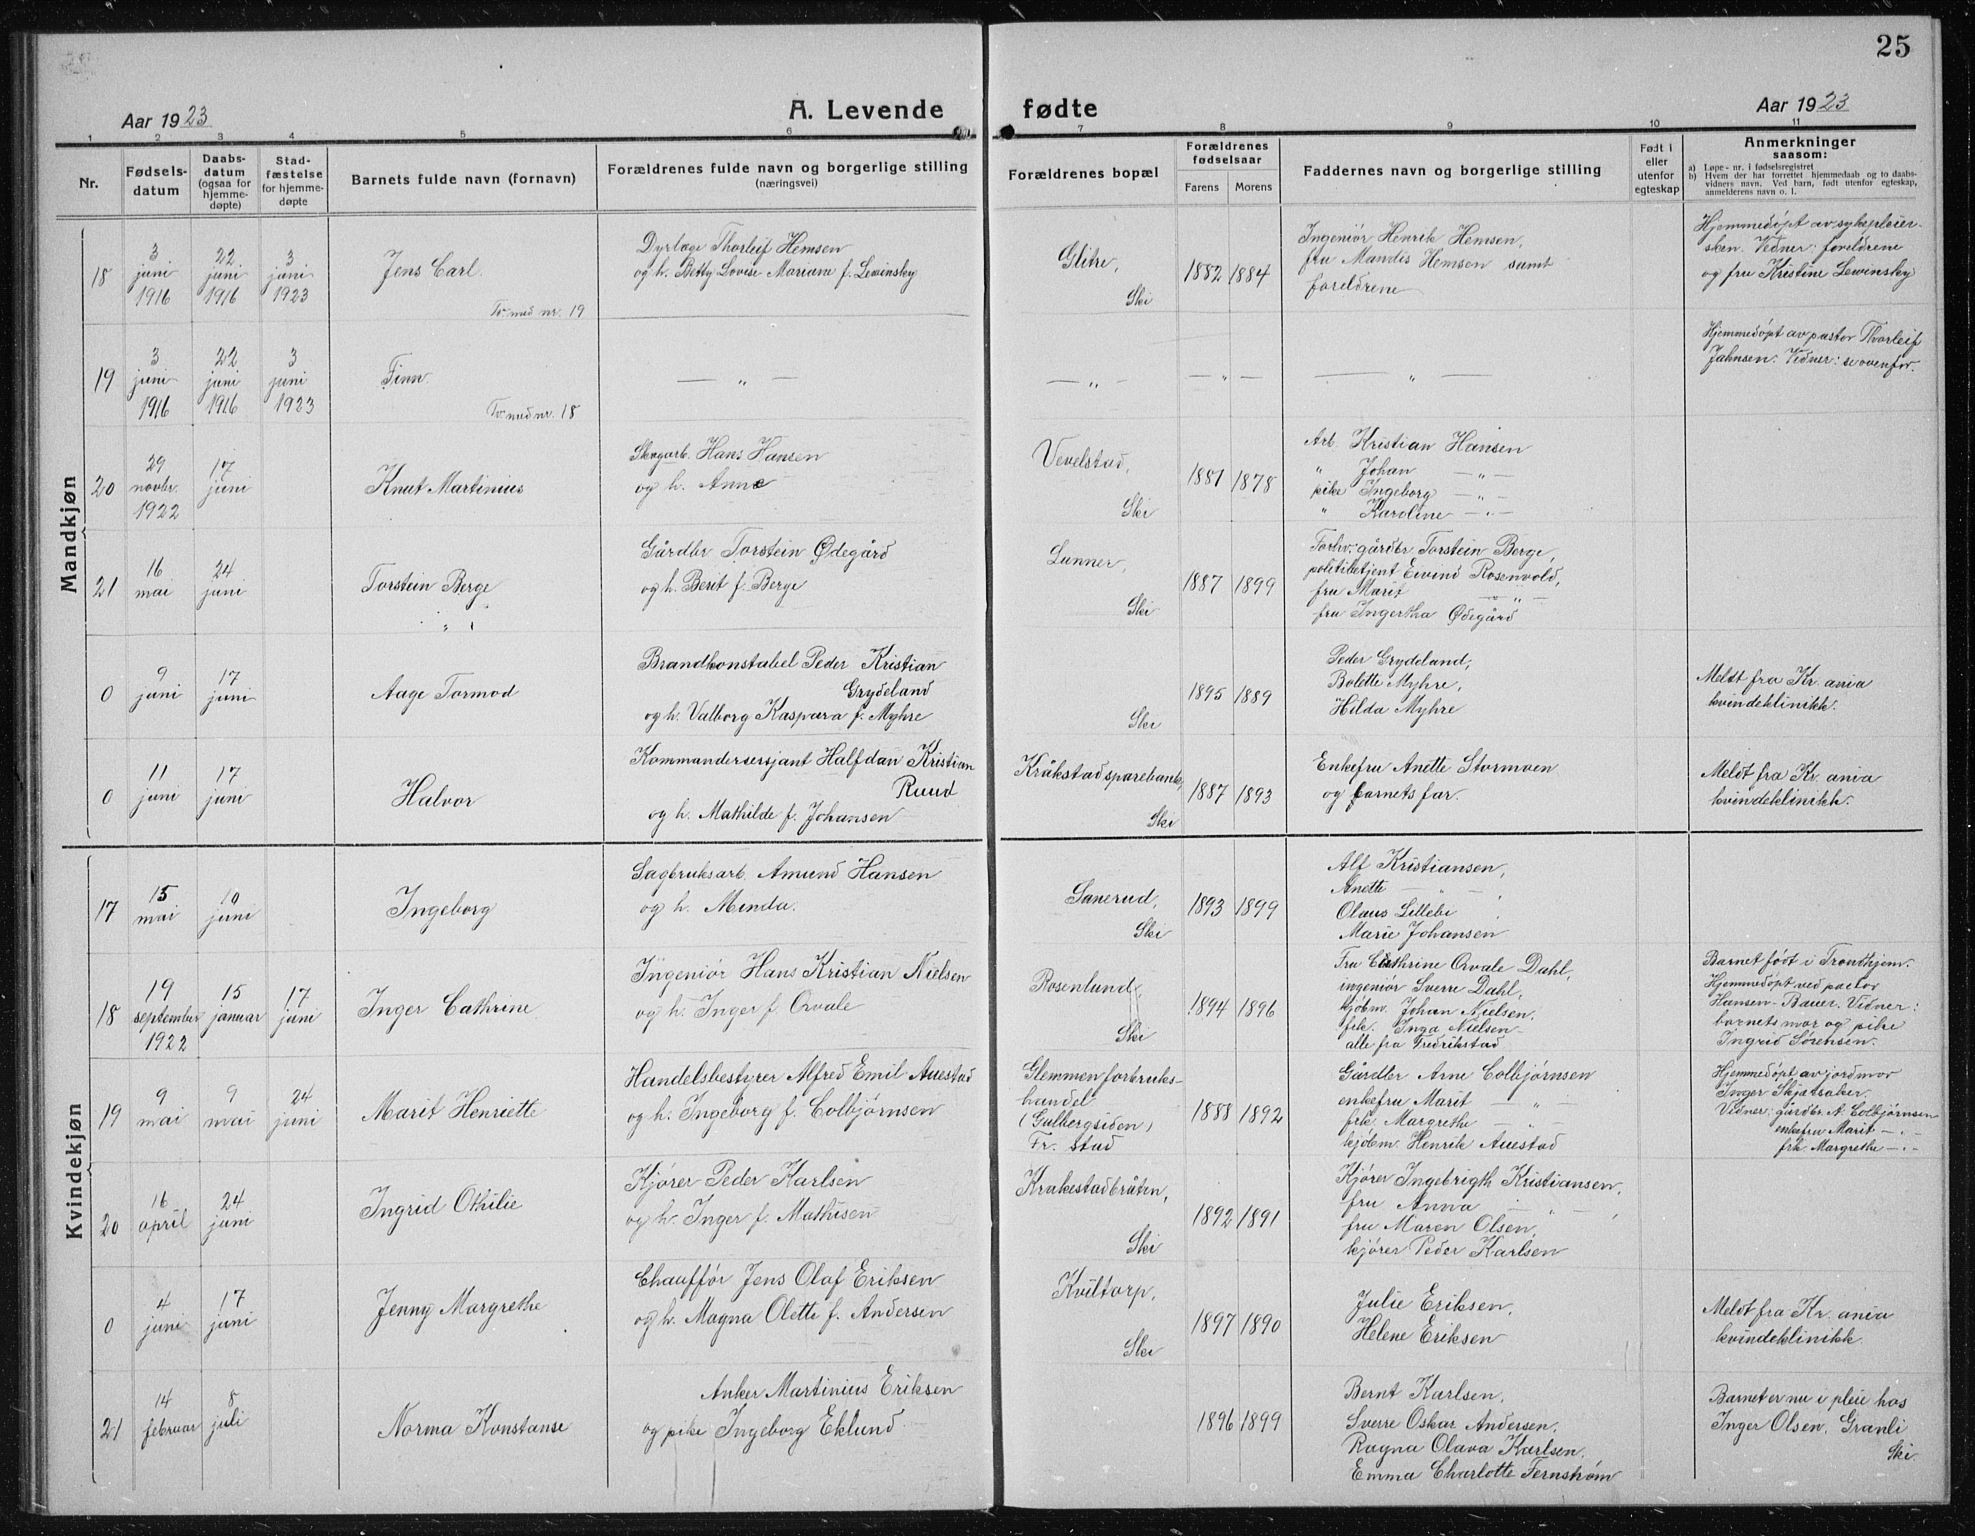 25
Aar 1923
A. Levende fødte
Aar 1923
1 2 3 4 5 6 7 8 9 10 11
Nr.
Fødsels-
datum
Daabs-
datum
(ogsaa for
hjemme-
døpte)
Stad-
fæstelse
for hjemme-
døpte
Barnets fulde navn (fornavn)
Forældrenes fulde navn og borgerlige stilling
(næringsvei)
Forældrenes bopæl
Forældrenes
fødselsaar
Farens Morens
Faddernes navn og borgerlige stilling
Født i
eller
utenfor
egteskap
Anmerkninger
saasom:
a) Løpe-nr. i fødselsregistret
b) Hvem der har forrettet hjemmedaab og to daabs-
vidners navn. Ved barn, født utenfor egteskap,
anmelderens navn o. l.
Mandkjøn
18
3 juni 1916
22 juni 1916
3 juni 1923
Jens Carl.
Tv. med nr. 19
Dyrlæge Thorleif Hemsen
og h. Betty Lovise Mariam f. Lewinsky
Glitre,
Ski
1882 1884
Ingeniør Henrik Hemsen,
fru Mandis Hemsen samt
foreldrene
Hjemmedøpt av sykepleier-
sken. Vidner: foreldrene
og fru Kristine Lewinsky
19
3 juni 1916
22 juni 1916
3 juni 1923
Finn.
Tv. med nr. 18
— „ —
— „ —
— „ —
— „ —
Hjemmedøpt av pastor Thorleif
Jahnsen. Vidner: se ovenfor.
20
29 novbr. 1922
17 juni
Knut Martinius
Skogarb. Hans Hansen
og h. Anne
Vevelstad,
Ski
1881 1878
Arb. Kristian Hansen
„ Johan — „ —
pike Ingeborg — „ —
„ Karoline — „ —
21
16 mai
24 juni
Torstein Berge
Gårdbr Torstein Ødegård
og h. Berit f. Berge
Lunner,
Ski
1887 1899
Forhv. gårdbr. Torstein Berge,
politibetjent Eivind Rosenvold,
fru Marit — „ —
fru Ingertha Ødegård
0
9 juni
17 juni
Aage Tormod
Brandkonstabel Peder Kristian
Grydeland
og h. Valborg Kaspara f. Myhre
Ski
1895 1889
Peder Grydeland,
Bolette Myhre,
Hilda Myhre
Meldt fra Kr.ania
kvindeklinikk.
0
11 juni
17 juni
Halvor
Kommandersersjant Halfdan Kristian
Ruud
og h. Mathilde f. Johansen
Kråkstad sparebank,
Ski
1887 1893
Enkefru Anette Stormoen
og barnets far.
Meldt fra Kr.ania
kvindeklinikk.
Kvindekjøn
17
15 mai
10 juni
Ingeborg
Sagbruksarb. Amund Hansen
og h. Minda.
Sanerud,
Ski
1893 1899
Alf Kristiansen,
Anette — „ —
Olaus Lillebi
Marie Johansen
18
19 september 1922
15 januar
17 juni
Inger Cathrine
Ingeniør Hans Kristian Nielsen
og h. Inger f. Orvale
Rosenlund,
Ski
1894 1896
Fru Cathrine Orvale Dahl,
ingeniør Sverre Dahl,
kjøbm. Johan Nielsen,
frk. Inga Nielsen —
alle fra Fredrikstad
Barnet født i Trondhjem.
Hjemmedøpt ved pastor
Hansen-Bauer. Vidner:
barnets mor og pike
Ingrid Sørensen.
19
9 mai
9 mai
24 juni
Marit Henriette
Handelsbestyrer Alfred Emil Auestad
og h. Ingeborg f. Colbjørnsen
Glemmen forbruks-
handel
(Gulbergsiden)
Fr. stad
1888 1892
Gårdbr Arne Colbjørnsen
enkefru Marit — „ —
frk. Margrethe — „ —
kjøbm. Henrik Auestad
Hjemmedøpt av jordmor
Inger Skjatsaker.
Vidner: gårdbr. A. Colbjørnsen
enkefru Marit — „ —
frk. Margrethe — „ —
20
16 april
24 juni
Ingrid Othilie
Kjører Peder Karlsen
og h. Inger f. Mathisen
Krakestadbråten,
Ski
1892 1891
Kjører Ingebrigth Kristiansen,
fru Anna — „ —
fru Maren Olsen,
kjører Peder Karlsen
0
4 juni
17 juni
Jenny Margrethe
Chauffør Jens Olaf Eriksen
og h. Magna Olette f. Andersen
Kviltorp,
Ski
1897 1890
Julie Eriksen,
Helene Eriksen
Meldt fra Kr.ania
kvindeklinikk.
21
14 februar
8 juli
Norma Konstanse
Anker Martinius Eriksen
og pike Ingeborg Eklund
1896 1899
Bernt Karlsen,
Sverre Oskar Andersen,
Ragna Olava Karlsen,
Emma Charlotte Fernstrøm
Barnet er nu i pleie hos
Inger Olsen, Granli
Ski